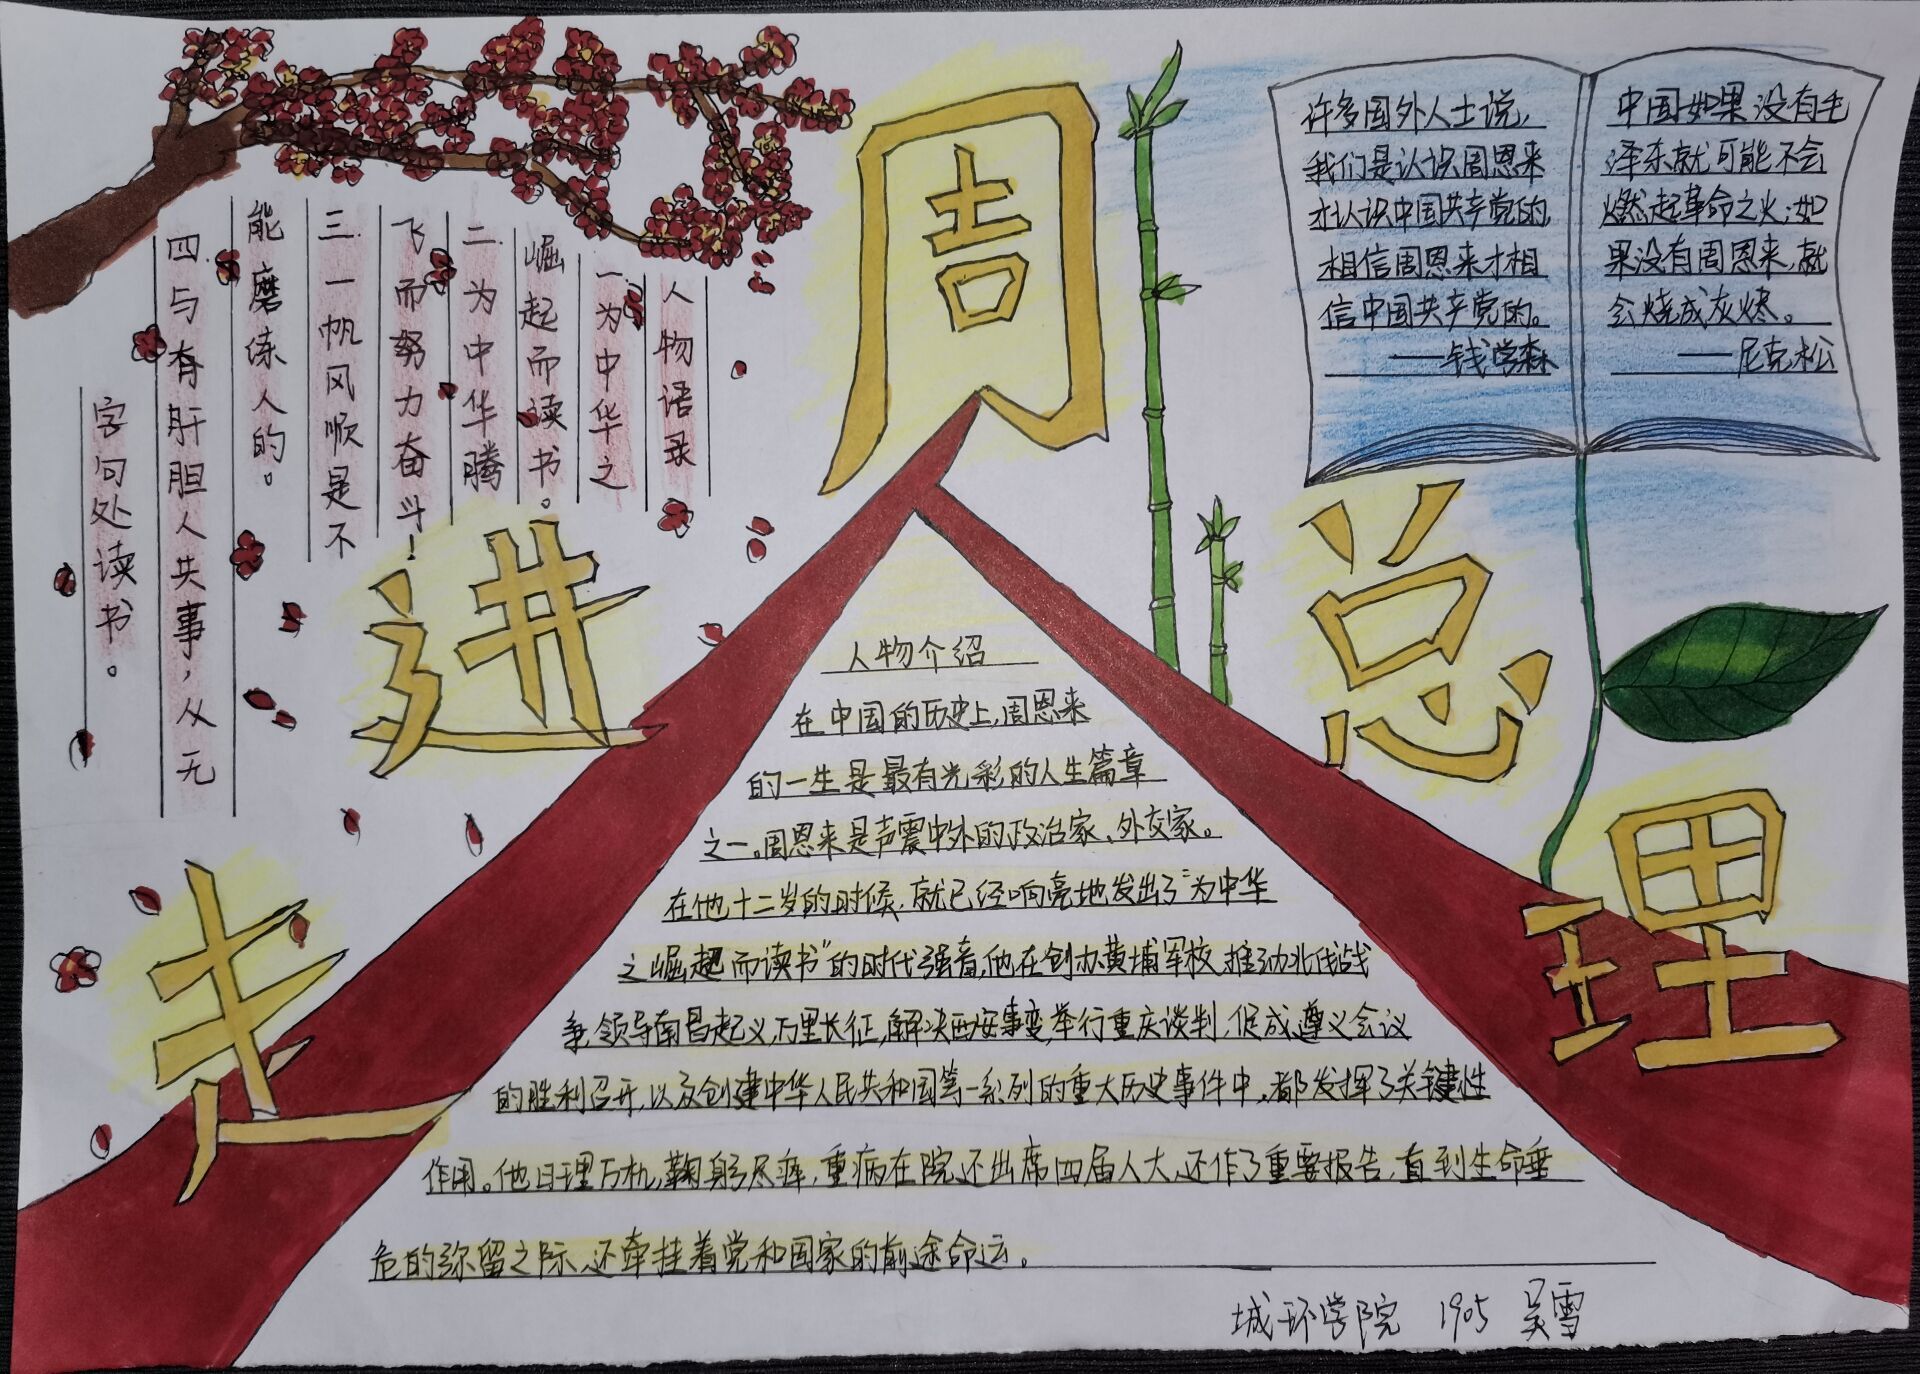 走进周总理
人物语录
一为中华之
崛起而读书。
二.为中华腾
飞而努力奋斗！
三.一帆风顺是不
能磨练人的。
四.与有肝胆人共事，从无
字句处读书。
许多国外人士说，
我们是认识周恩来
才认识中国共产党的，
相信周恩来才相
信中国共产党的。
——钱学森
中国如果没有毛
泽东就可能不会
燃起革命之火；如
果没有周恩来，就
会烧成灰烬。
——尼克松
人物介绍
在中国的历史上，周恩来
的一生是最有光彩的人生篇章
之一。周恩来是声震中外的政治家、外交家。
在他十二岁的时候，就已经响亮地发出了“为中华
之崛起而读书”的时代强音，他在创办黄埔军校，推动北伐战
争，领导南昌起义，万里长征，解决西安事变，举行重庆谈判，促成遵义会议
的胜利召开，以及创建中华人民共和国等一系列的重大历史事件中，都发挥了关键性
作用。他日理万机，鞠躬尽瘁，重病在院，还出席四届人大，还作了重要报告，直到生命垂
危的弥留之际，还牵挂着党和国家的前途命运。
城环学院 1905 吴雪